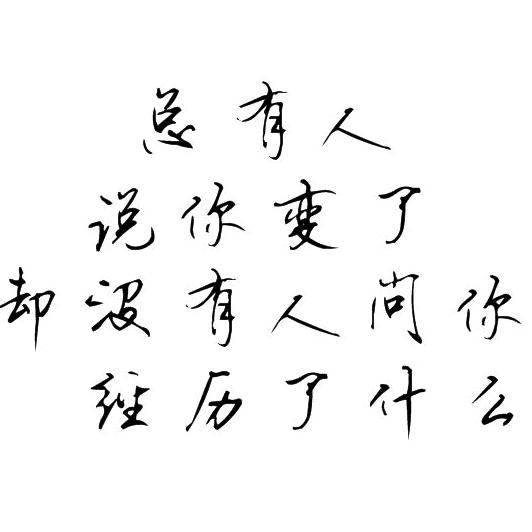 总有人
说你变了
却没有人问你
经历了什么